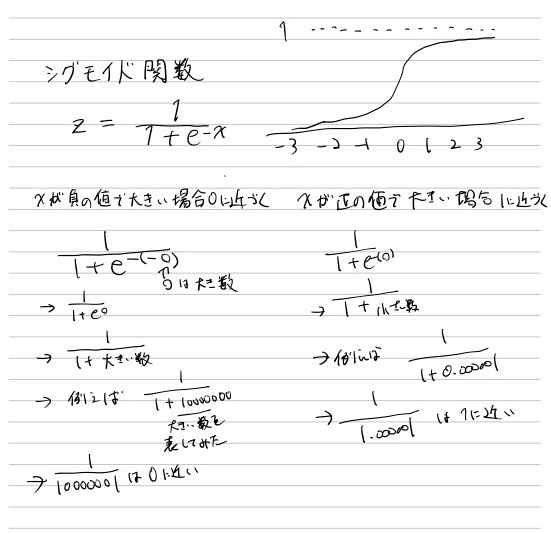 1
シグモイド関数
z = 1/(1+e^-x)
-3 -2 -1 0 1 2 3
xが負の値で大きい場合0に近づく
1/(1+e^-(-○))
○は大きい数
→ 1/(1+e^○)
→ 1/(1+大きい数)
→ 例えば 1/(1+10000000)
大きい数を
表してみた
→ 1/10000001 は0に近い
xが正の値で大きい場合1に近づく
1/(1+e^-(○))
→ 1/(1+小さい数)
→例えば 1/(1+0.00001)
→ 1/1.00001 は1に近い